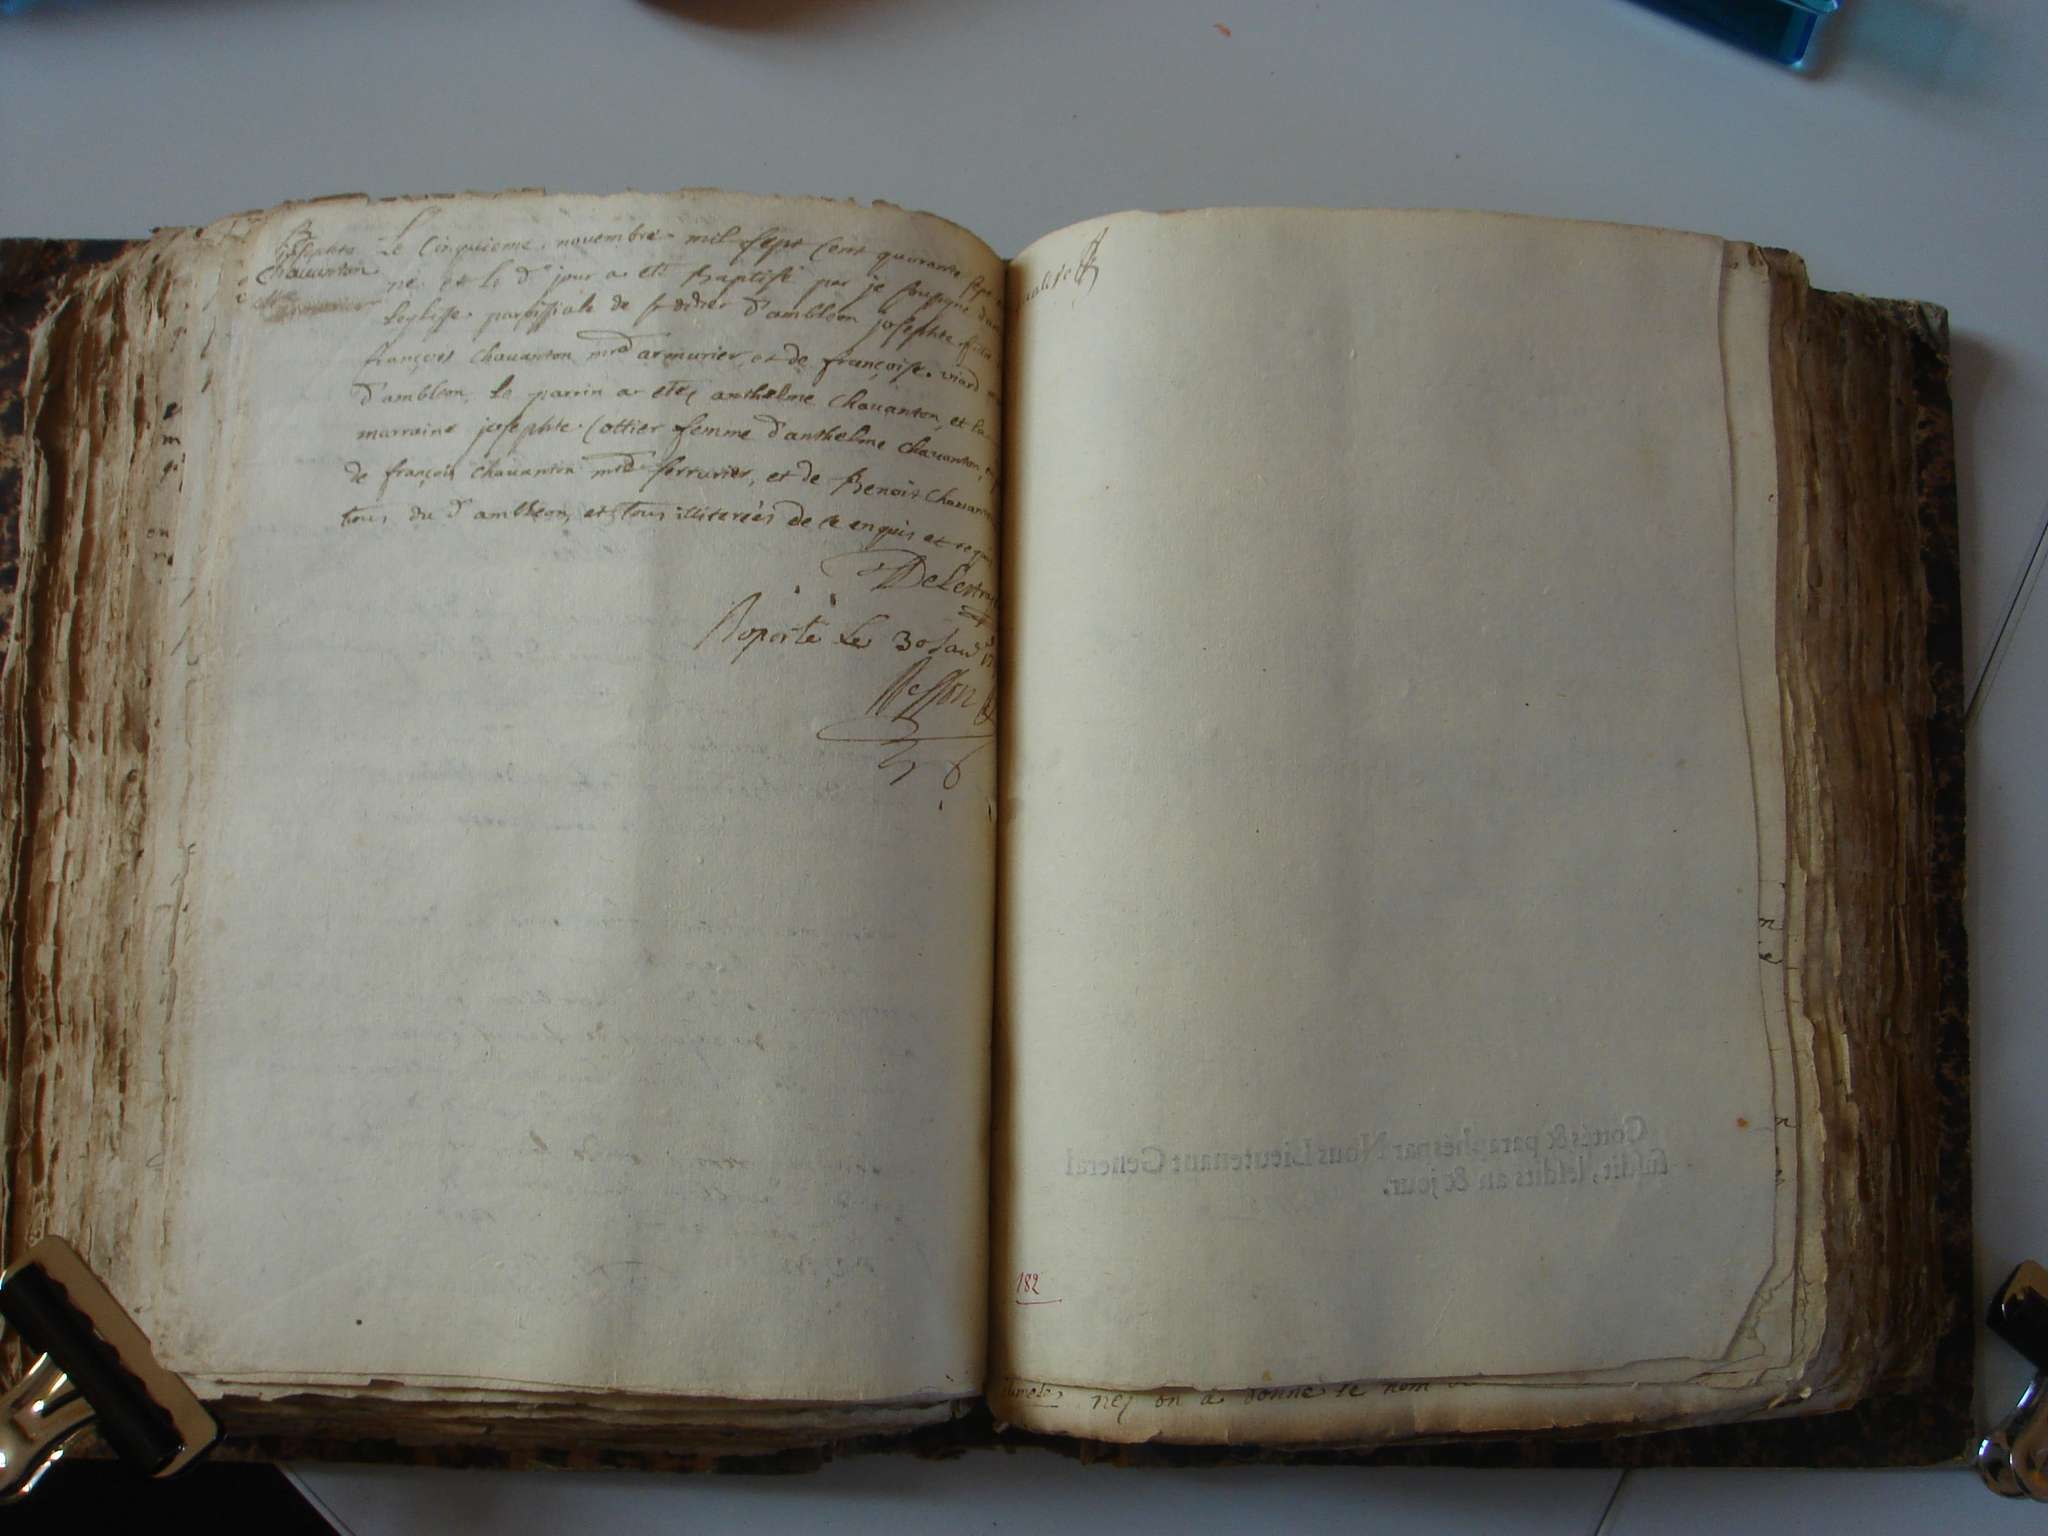 B
josephte
Chavanton
Le cinquieme novembre mil sept cent quarante sept
né et le d jour a eté Baptisé par je soussigné dans
leglise paroissiale de st didier d'ambleon josephte fille
françois chavanton mrd armurier, et de françoise viard
d'ambleon, le parrin a eté anthelme chavanton, et la
marraine josephte Cottier femme d'anthelme chavanton,
de françois chavanton mrd serrurier, et de Benoit chavanton
tous du d ambleon, et tous illiterés de ce enquis et requis
Delestra
Raporté Le 30 Janv 17
Besson
Cottés & paraphés par Nous Lieutenant General
susdit, lesdits an & jour.
182
nez on a donné le nom